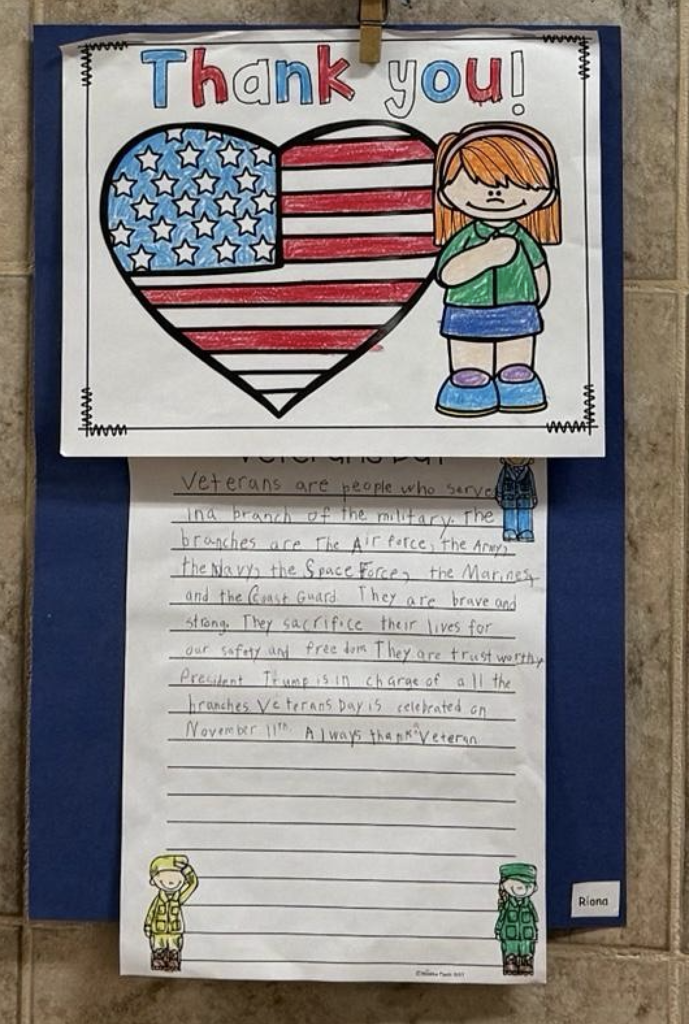 Thank you!
Veterans Day
Veterans are people who serve
in a branch of the military. The
branches are The Air force, the Army,
the Navy, the Space Force, the Marines,
and the Coast Guard. They are brave and
strong. They sacrifice their lives for
our safety and freedom They are trust worthy
President Trump is in charge of all the
branches Veterans Day is celebrated on
November 11th. Always thank a Veteran
Riona